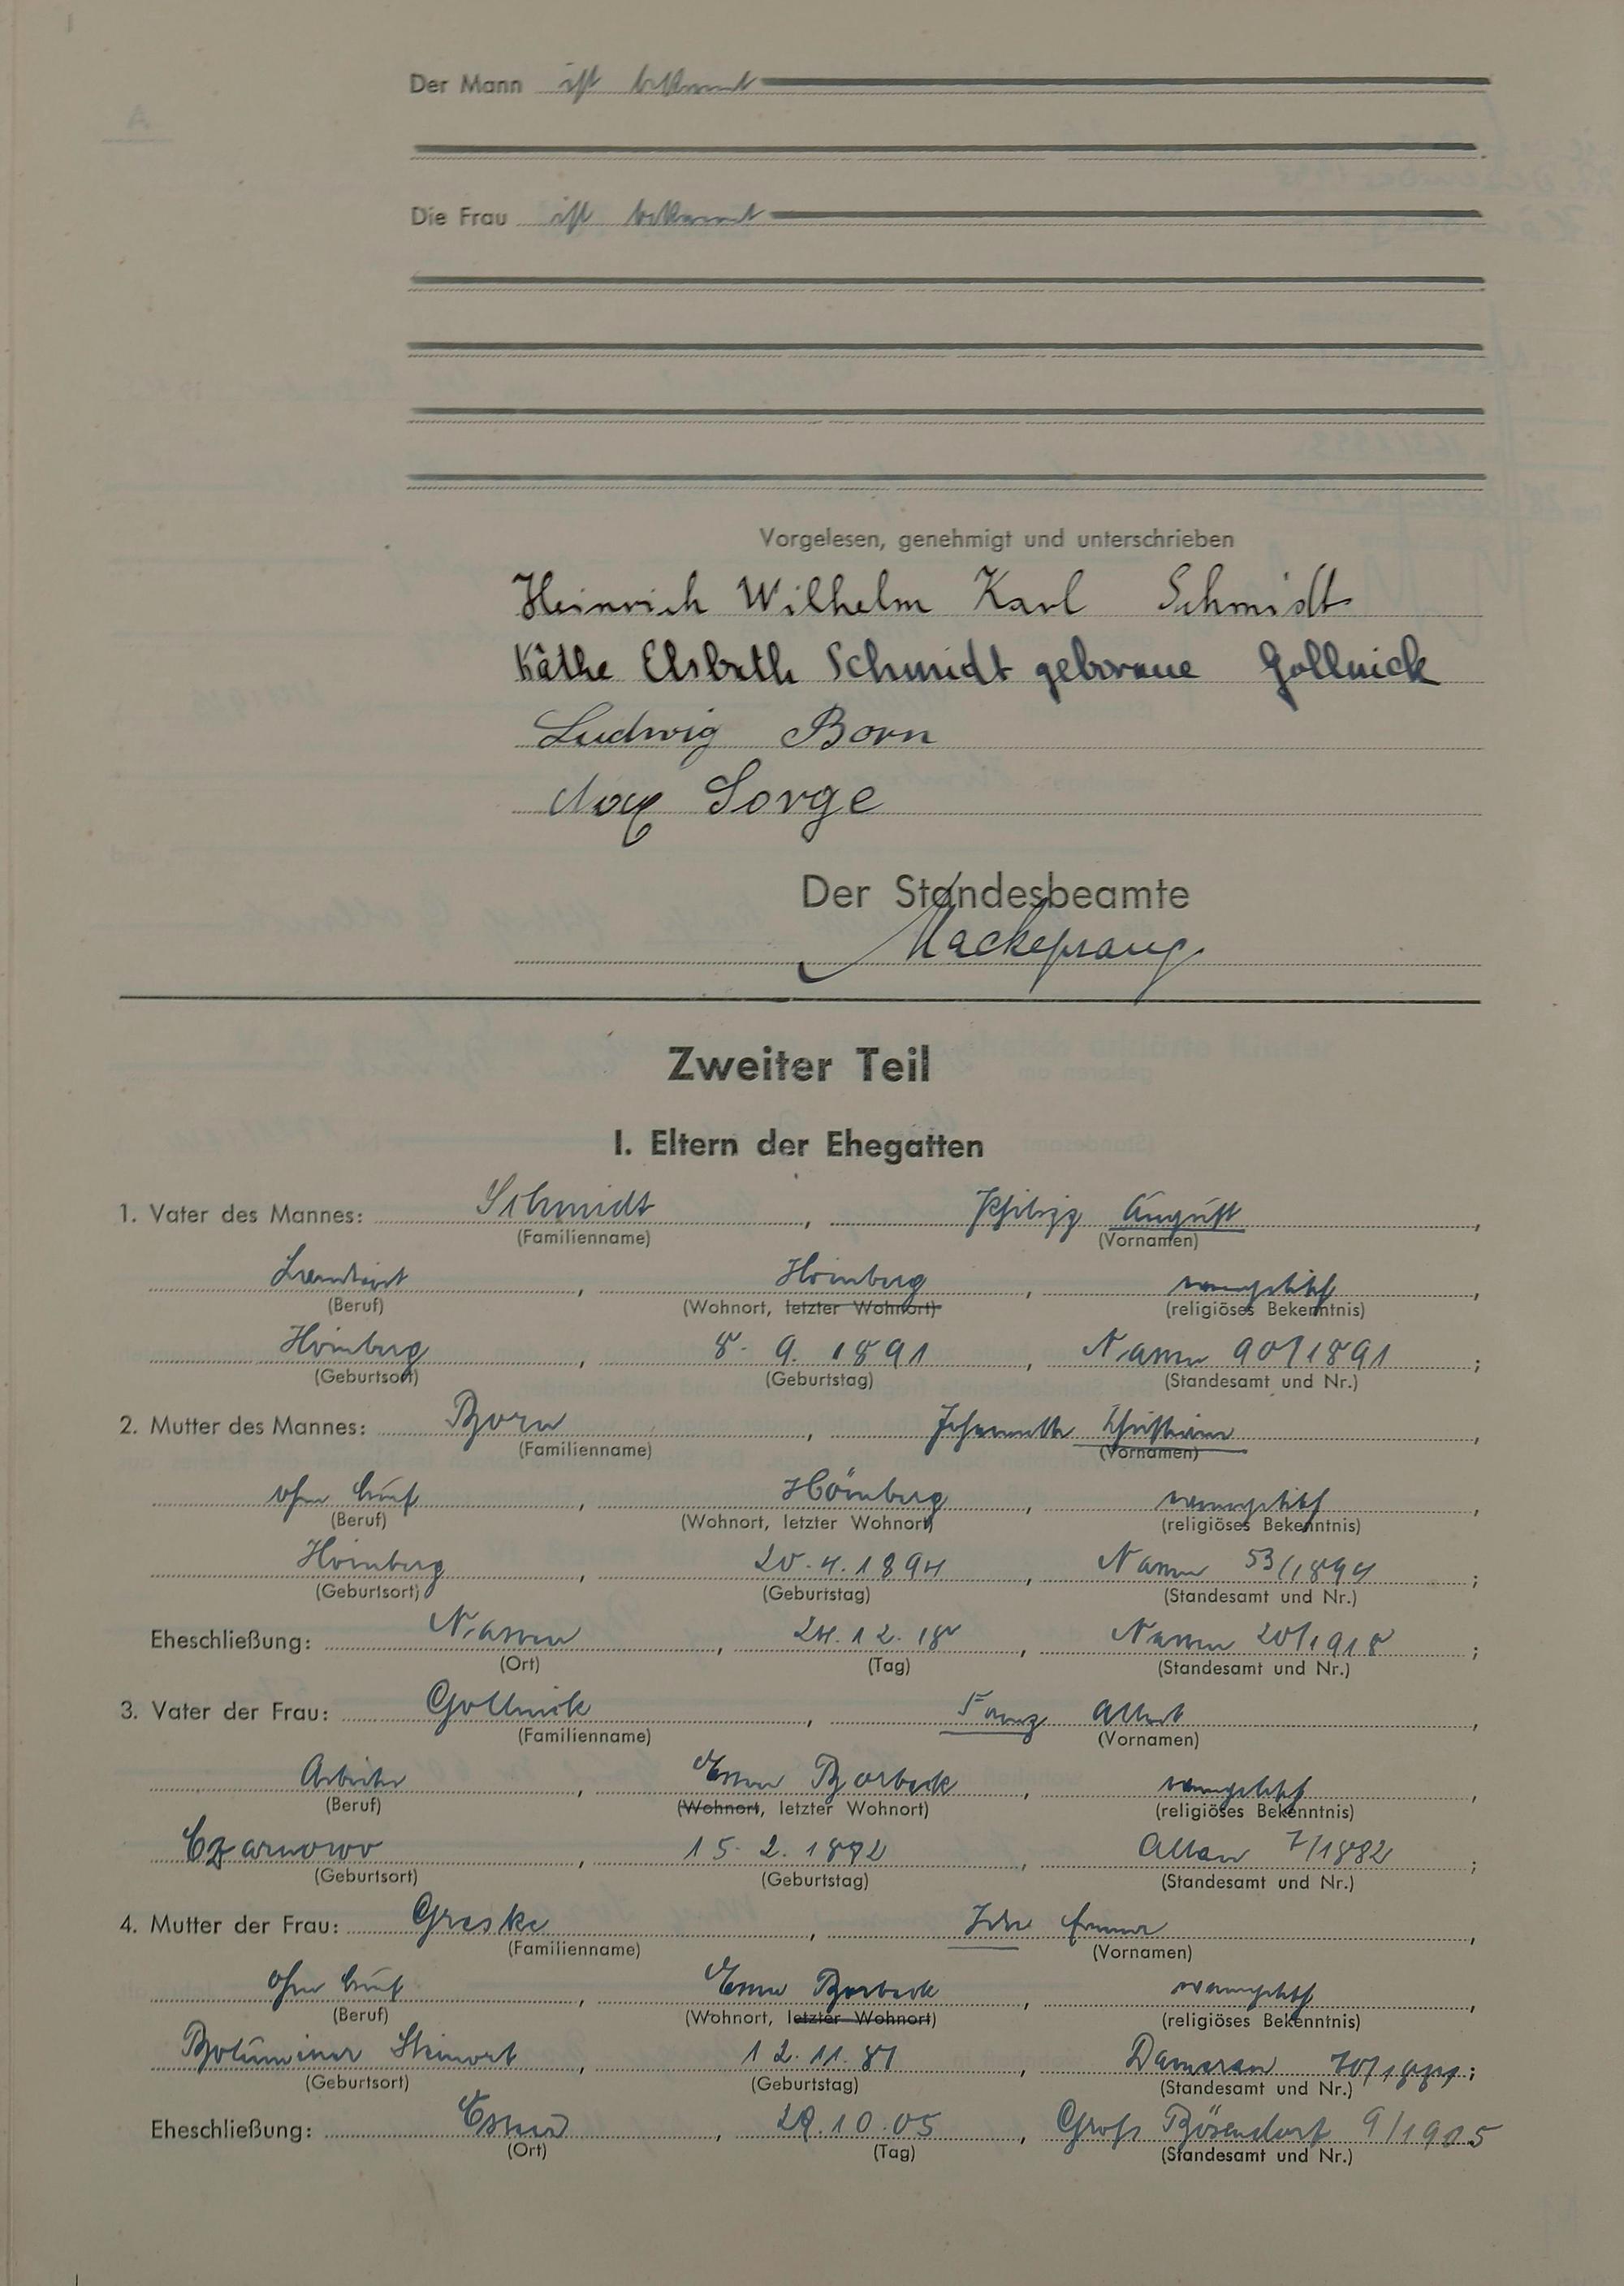 Der Mann ist bekannt
Die Frau ist bekannt
Vorgelesen, genehmigt und unterschrieben
Heinrich Wilhelm Karl Schmidt
Käthe Elsbeth Schmidt geborene Gollnick
Ludwig Born
Max Sorge
Der Standesbeamte
Mackeprang
Zweiter Teil
I. Eltern der Ehegatten
1. Vater des Mannes: Schmidt, Philipp August,
(Familienname) (Vornamen)
Landwirt, Hömberg, evangelisch,
(Beruf) (Wohnort, letzter Wohnort) (religiöses Bekenntnis)
Hömberg, 8. 9. 1891, Nassau 90/1891;
(Geburtsort) (Geburtstag) (Standesamt und Nr.)
2. Mutter des Mannes: Born, Johannette Christiane,
(Familienname) (Vornamen)
ohne Beruf, Hömberg, evangelisch,
(Beruf) (Wohnort, letzter Wohnort) (religiöses Bekenntnis)
Hömberg, 20. 4. 1894, Nassau 53/1894;
(Geburtsort) (Geburtstag) (Standesamt und Nr.)
Eheschließung: Nassau, 24. 12. 18, Nassau 20/1918;
(Ort) (Tag) (Standesamt und Nr.)
3. Vater der Frau: Gollnick, Franz Albert,
(Familienname) (Vornamen)
Arbeiter, Essen Borbeck, evangelisch,
(Beruf) (Wohnort, letzter Wohnort) (religiöses Bekenntnis)
Czarnowo, 15. 2. 1882, 7/1882;
(Geburtsort) (Geburtstag) (Standesamt und Nr.)
4. Mutter der Frau: Greske, Ida Emma,
(Familienname) (Vornamen)
ohne Beruf, Essen Borbeck, evangelisch,
(Beruf) (Wohnort, letzter Wohnort) (religiöses Bekenntnis)
Steinort, 12. 11. 81, Damerau 70/1881;
(Geburtsort) (Geburtstag) (Standesamt und Nr.)
Eheschließung: , 29. 10. 05, Groß Bösendorf 9/1905
(Ort) (Tag) (Standesamt und Nr.)